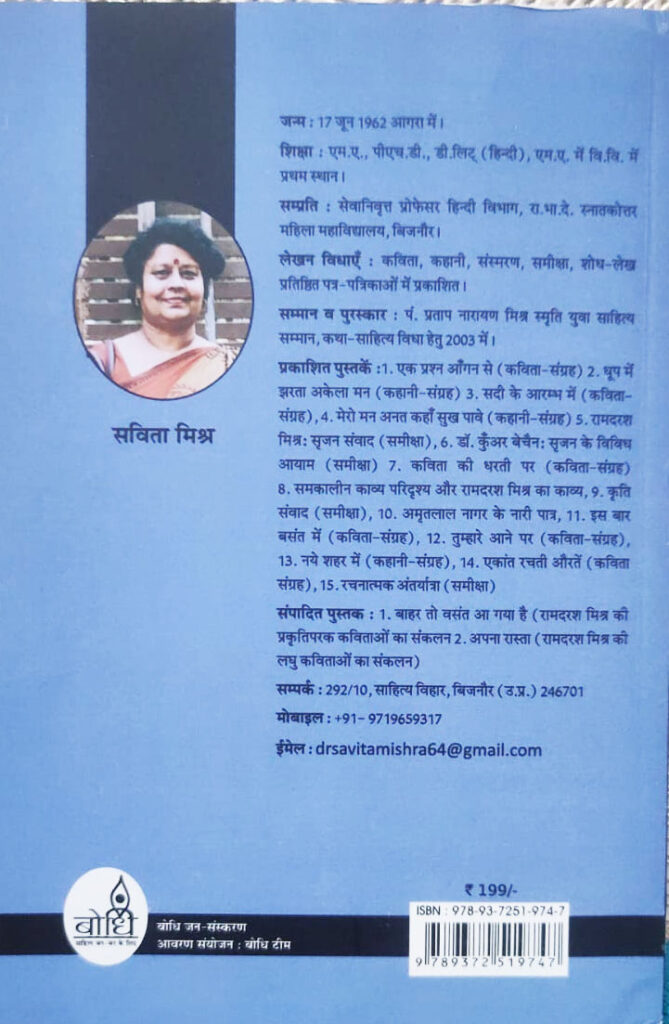 जन्म : 17 जून 1962 आगरा में।
शिक्षा : एम.ए., पीएच.डी., डी.लिट् (हिन्दी), एम.ए. में वि.वि. में
प्रथम स्थान।
सम्प्रति : सेवानिवृत्त प्रोफेसर हिन्दी विभाग, रा.भा.दे. स्नातकोत्तर
महिला महाविद्यालय, बिजनौर।
लेखन विधाएँ : कविता, कहानी, संस्मरण, समीक्षा, शोध-लेख
प्रतिष्ठित पत्र-पत्रिकाओं में प्रकाशित।
सम्मान व पुरस्कार : पं. प्रताप नारायण मिश्र स्मृति युवा साहित्य
सम्मान, कथा-साहित्य विधा हेतु 2003 में।
प्रकाशित पुस्तकें :1. एक प्रश्न आँगन से (कविता-संग्रह) 2. धूप में
झरता अकेला मन (कहानी-संग्रह) 3. सदी के आरम्भ में (कविता-
संग्रह),4. मेरो मन अनत कहाँ सुख पावे (कहानी-संग्रह) 5. रामदरश
मिश्र: सृजन संवाद (समीक्षा), 6. डॉ. कुँअर बेचैन: सृजन के विविध
आयाम (समीक्षा) 7. कविता की धरती पर (कविता-संग्रह)
8. समकालीन काव्य परिदृश्य और रामदरश मिश्र का काव्य, 9. कृति
संवाद (समीक्षा), 10. अमृतलाल नागर के नारी पात्र, 11. इस बार
बसंत में (कविता-संग्रह), 12. तुम्हारे आने पर (कविता-संग्रह),
13. नये शहर में (कहानी-संग्रह), 14. एकांत रचती औरतें (कविता
संग्रह), 15. रचनात्मक अंतर्यात्रा (समीक्षा)
संपादित पुस्तक : 1. बाहर तो वसंत आ गया है (रामदरश मिश्र की
प्रकृतिपरक कविताओं का संकलन 2. अपना रास्ता (रामदरश मिश्र की
लघु कविताओं का संकलन)
सम्पर्क : 292/10, साहित्य विहार, बिजनौर (उ.प्र.) 246701
मोबाइल : +91- 9719659317
ईमेल : drsavitamishra64@gmail.com
सविता मिश्र
₹ 199/-
ISBN : 978-93-7251-974-7
9 789372 519747
बोधि
साहित्य जन-जन के लिए
बोधि जन-संस्करण
आवरण संयोजन : बोधि टीम